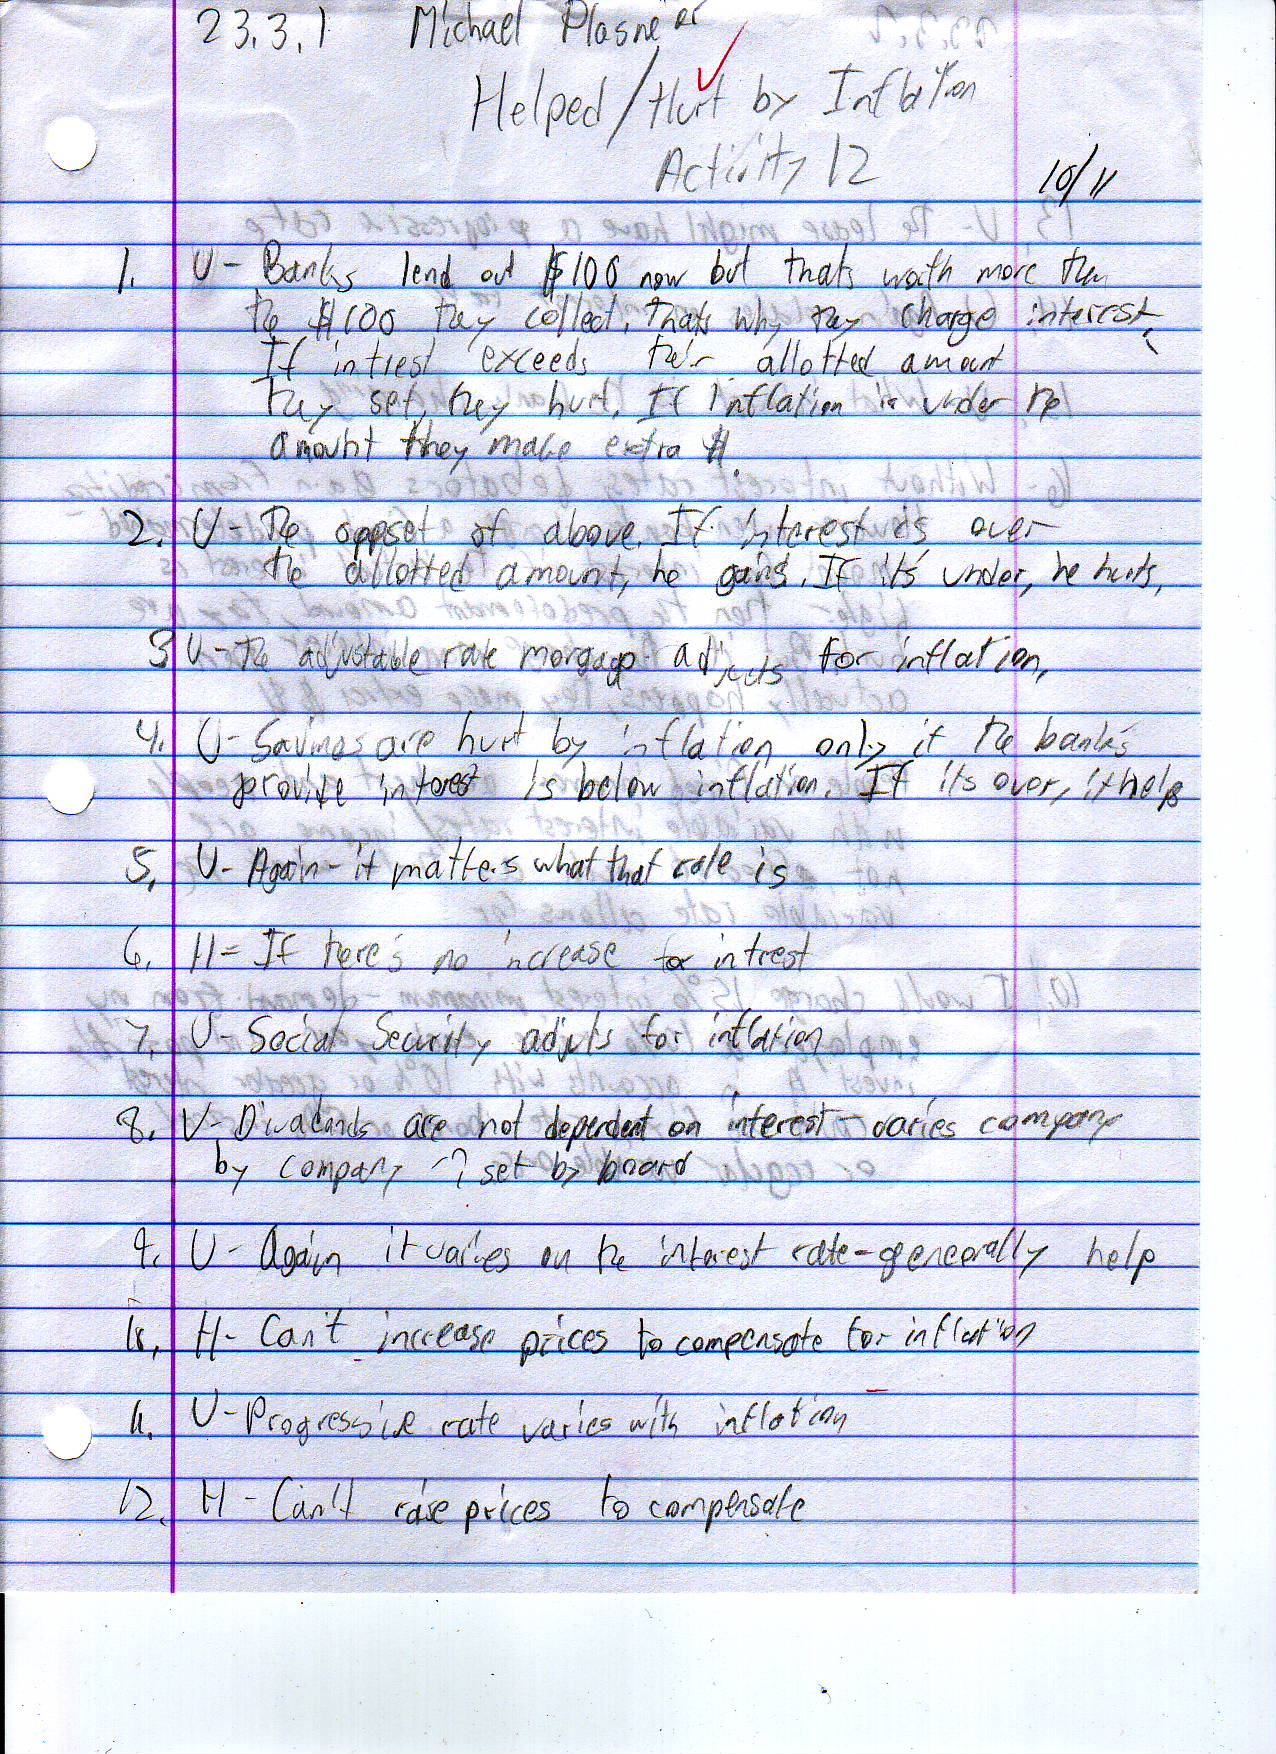 23.3.1 Michael Plasmeier
Helped/Hurt by Inflation
Activity 12
10/11
1. U - Banks lend out $100 now but thats worth more then
the $100 they collect, thats why they charge interest.
If intrest exceeds their allotted amount
they set, they hurt. If inflation is under the
amount they make extra $.
2. U - The opposet of above. If interest is over
the allotted amount, he gains. If it's under, he hurts.
3 U - The adjustable rate morgage adjusts for inflation.
4. U - Savings are hurt by inflation only if the bank's
provide interest is below inflation. If its over, it helps
5. U - Again - it matters what that rate is
6. H = If there's no increase for intrest
7. U - Social Security adjusts for inflation
8. U - Dividends are not dependent on interest - varies company
by company -> set by board
9. U - Again it varies on the interest rate - generally help
10. H - Can't increase prices to compensate for inflation
11. U - Progressive rate varies with inflation
12. H - Can't raise prices to compensate